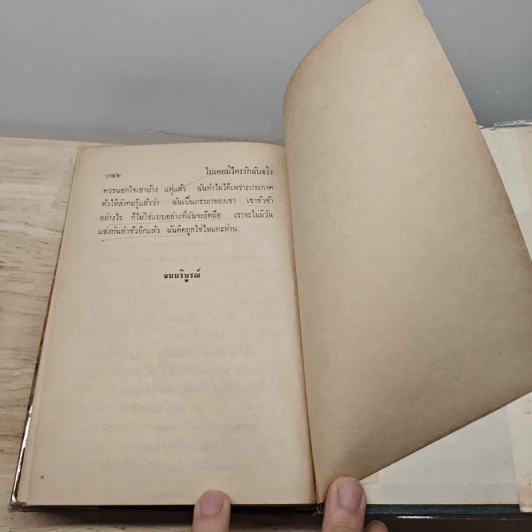 ๓๔๒ ไม่เคยมีใครรักฉันจริง
ควรนอกใจเขาบ้าง แต่แล้ว ฉันทำไม่ได้เพราะประกาศ
ตัวให้สังคมรู้แล้วว่า ฉันเป็นภรรยาของเขา เขาชั่วช้า
อย่างไร ก็ไม่ใช่แบบอย่างที่ฉันจะยึดถือ เราจะไม่มีวัน
แข่งกันทำชั่วอีกแล้ว ฉันคิดถูกใช่ไหมคะท่าน.
จบบริบูรณ์